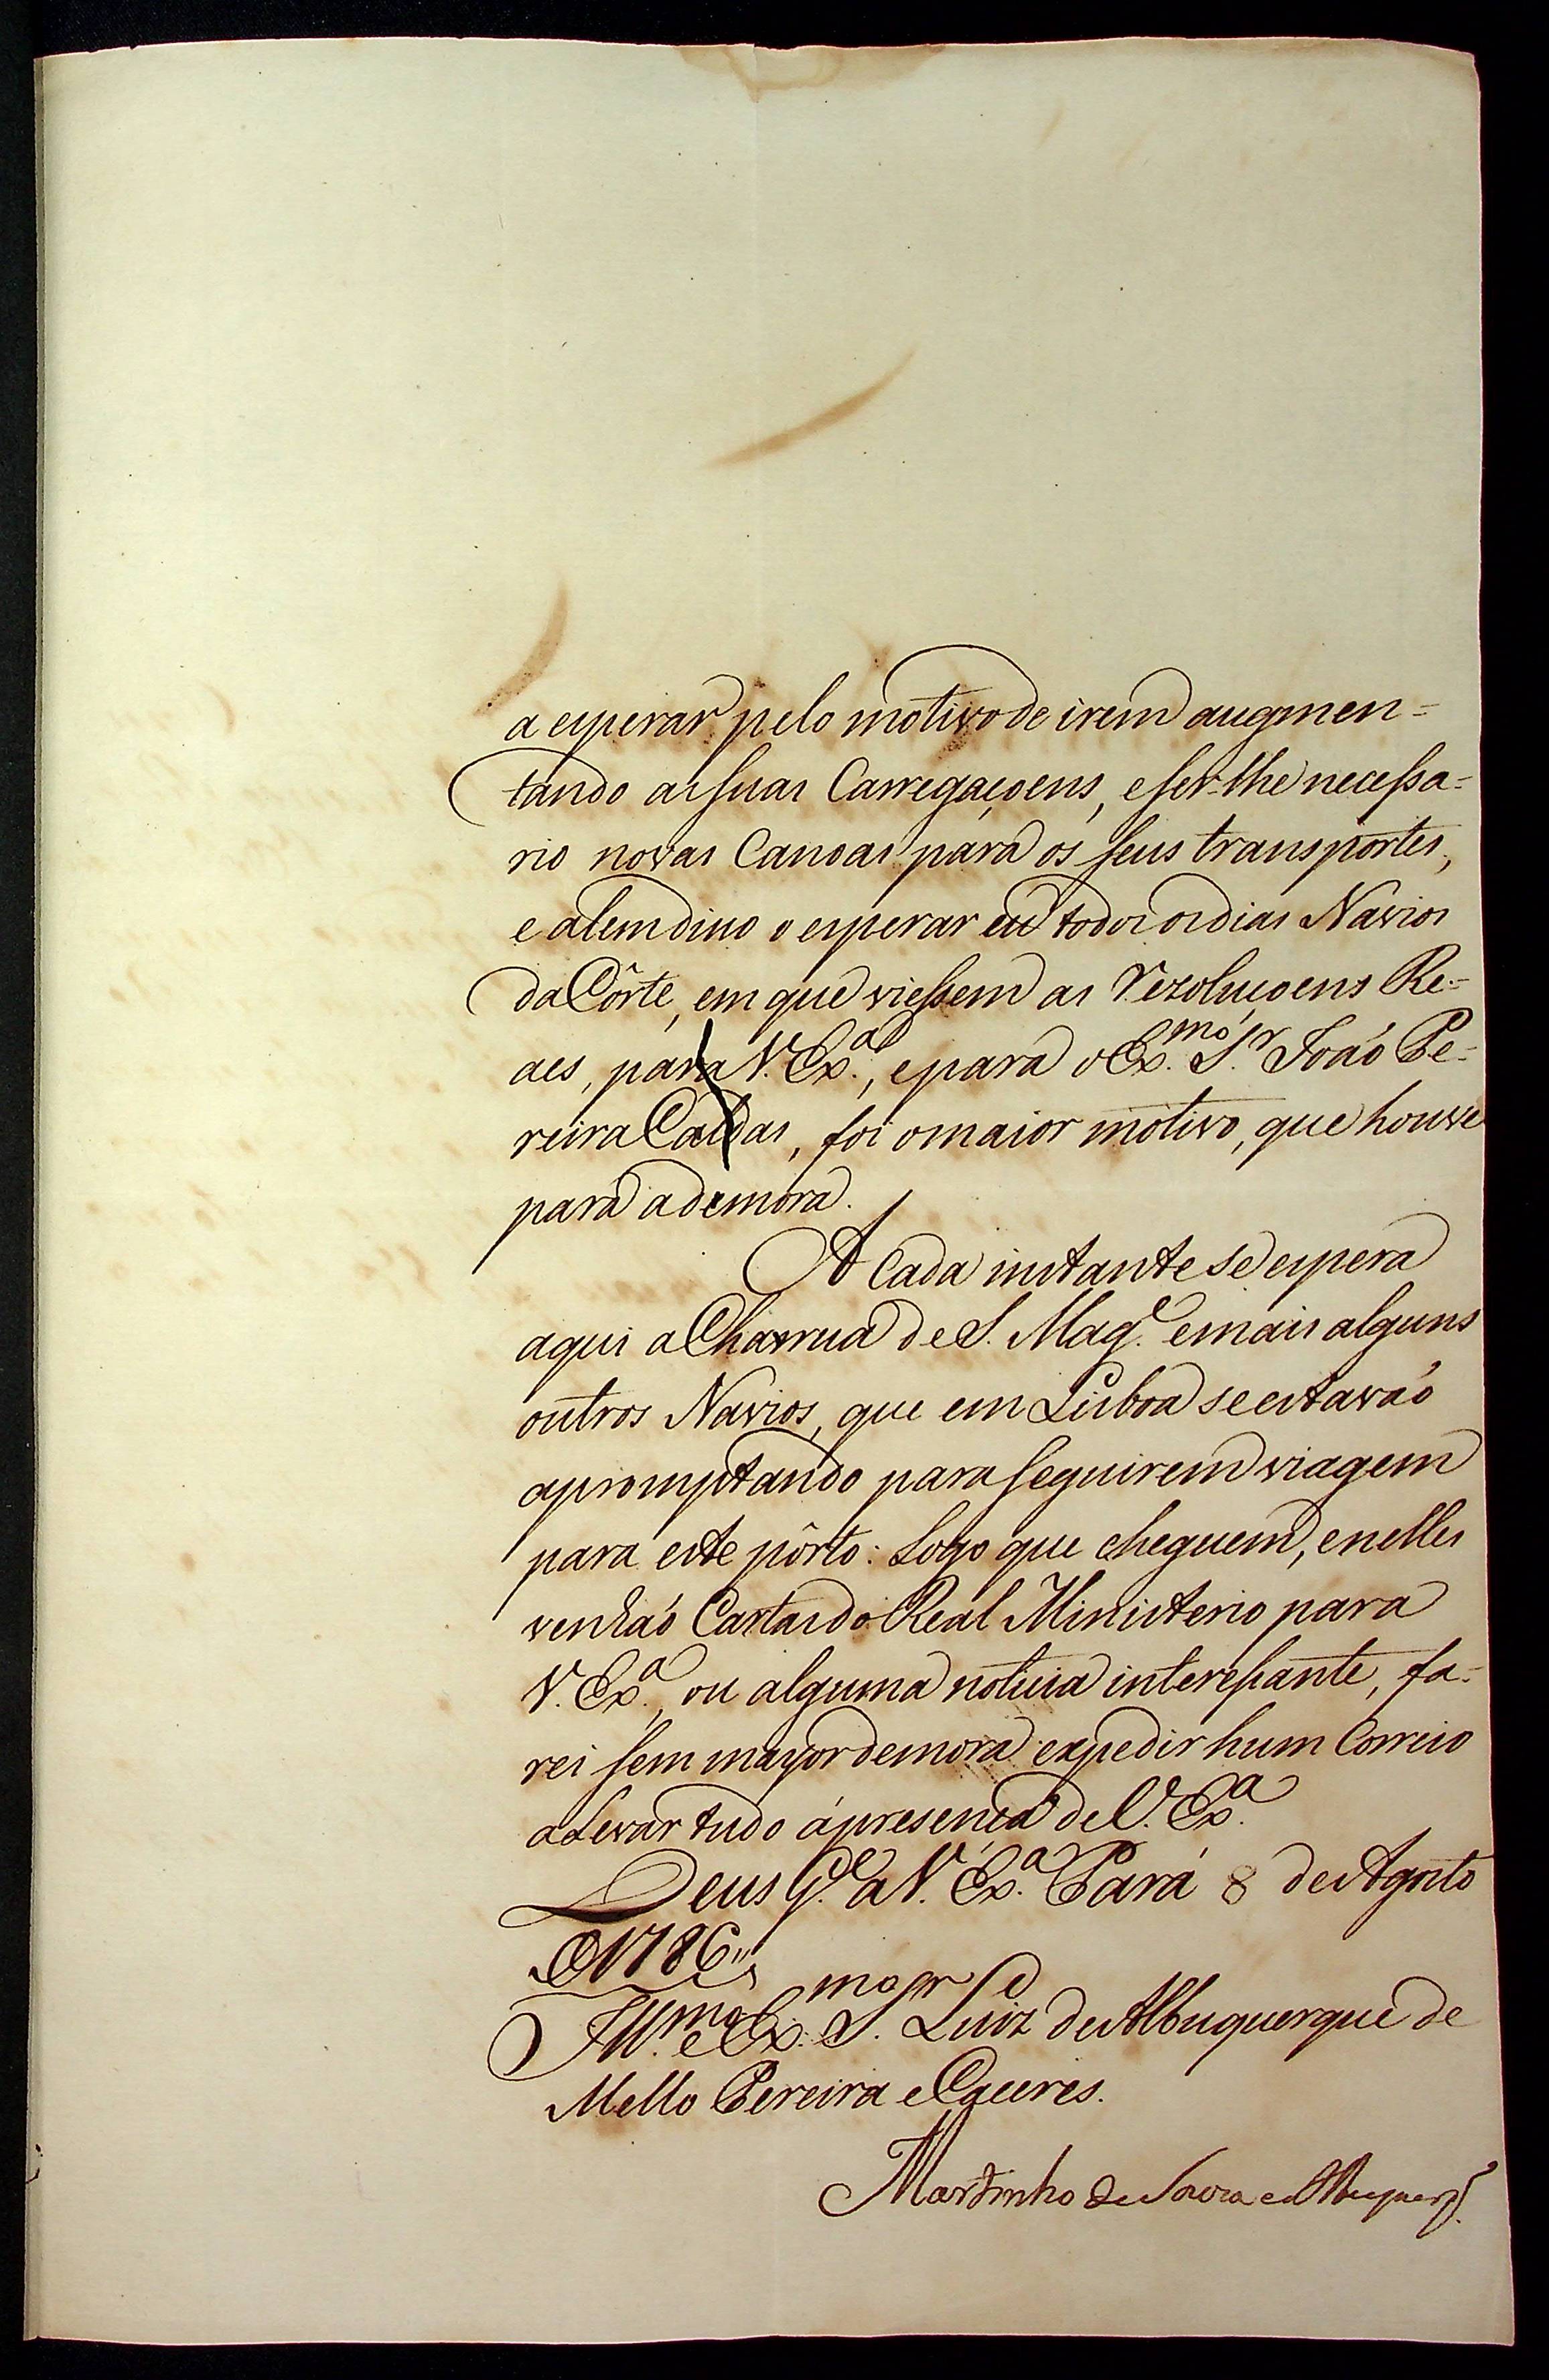 a esperar pelo motivo de irem augmen=
tando as suas Carregaçoens, e ser-lhe necessa=
rio novas Canoas para os seus transportes,
e alem disso o esperar eu todos os dias Navios
da Côrte, em que viessem as Rezoluçoens Re=
aes, para V. Ex.ª, e para o Ex.mo S.r João Pe=
reira Caldas, foi o maior motivo, que houve
para a demora.
A Cada instante se espera
aqui a Charrua de S. Mag.e e mais alguns
outros Navios, que em Lisboa se estavaõ
apromptando para seguirem viagem
para este pôrto: Logo que cheguem, e nelles
venhaõ Cartas do Real Ministerio para
V. Ex.ª, ou alguma noticia interessante, fa=
rei sem mayor demora expedir hum Correio
a Levar tudo á presença de V. Ex.ª
Deus G.e a V. Ex.ª Pará 8 de Agosto
de 1786,,
Ill.mo e Ex.mo S.r Luiz de Albuquerque de
Mello Pereira e Caceres.
Martinho de Souza e Albuquerq.